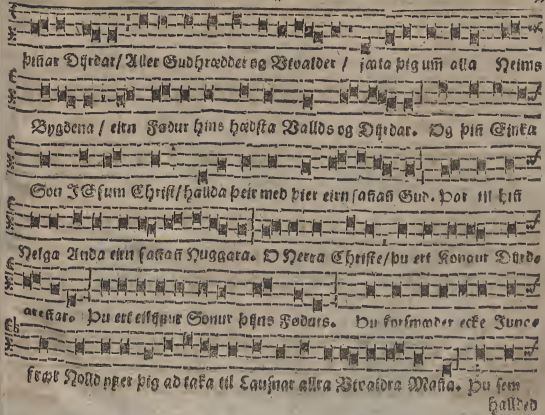 þinar Dyrdar/ Aller Gudhrædder og Vtvalder / jata þig um alla Heims
Bygdena / eirn Fødur hins hædsta Vallds og Dyrdar. Og þin Einka
Son JEsum Christ/ hallda þeir med þier eirn sañañ Gud. Þar til hiñ
Helga Anda eirn sañañ Huggara. O Herra Christe/ þu ert Kongur Dyrd-
areñar. Þu ert eilijfur Sonur þijns Fødurs. Þu forsmæder ecke Junc-
frær Holld upper þig ad taka til Lausnar allra Vtvaldra Maña. Þu sem
hallded